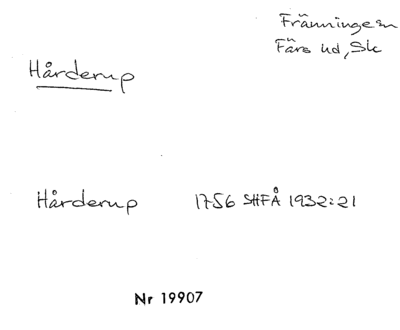 Fränninge sn
Färs hd, Sk
Hårderup
Hårderup 1756 SHFÅ 1932:21
Nr 19907